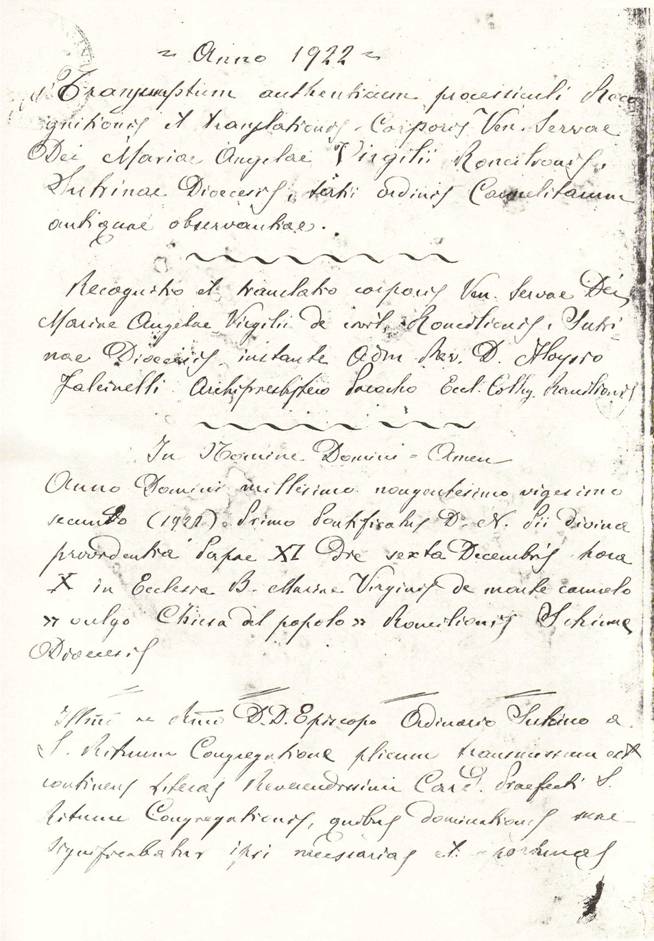 ~ Anno 1922 ~
Transumptum authenticum processiculi Reco
gnitionis et translationis Corporis Ven. Servae
Dei Mariae Angelae Virgilii Roncilionis,
Sutrinae Dioecesis, tertii ordinis Carmelitarum
antiquae observantiae.
Recognitio et translatio corporis Ven. Servae Dei
Mariae Angelae Virgilii de civit. Roncilionis, Sutri-
nae Dioecesis, instante Adm Rev. D. Aloysio
Falcinelli Archipresbytero Parocho Eccl. Cath. Roncilionis
In Nomine Domini - Amen
Anno Domini millesimo nongentesimo vigesimo
secundo (1922) Primo Pontificatus D. N. Pii divina
providentia Papae XI Die sexta Decembris hora
X in Ecclesia B. Mariae Virginis de monte carmelo
» vulgo Chiesa del popolo » Roncilionis Sutrinae
Dioecesis
Illmo ac Rmo D.D. Episcopo Ordinario Sutrino a
S. Rituum Congregatione plicum transmissum est
continens Literas Reverendissimi Card. Praefecti S.
Rituum Congregationis, quibus dominationi suae
significabatur ipsi necessarias et